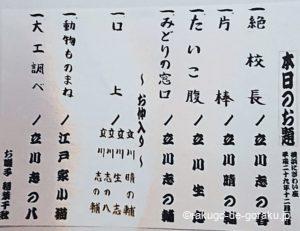 本日のお題
横浜にぎわい座
平成二十九年十二月
一絶校長 / 立川志の春
一片棒 / 立川晴の輔
一たいこ腹 / 立川生志
一みどりの窓口 / 立川志の輔
〜お仲入り〜
一口上 / 立川晴の輔
立川生志
立川志の輔
一動物ものまね / 江戸家小猫
一大工調べ / 立川志の八
お囃子 稲葉千秋
akugo-de-goraku.jp